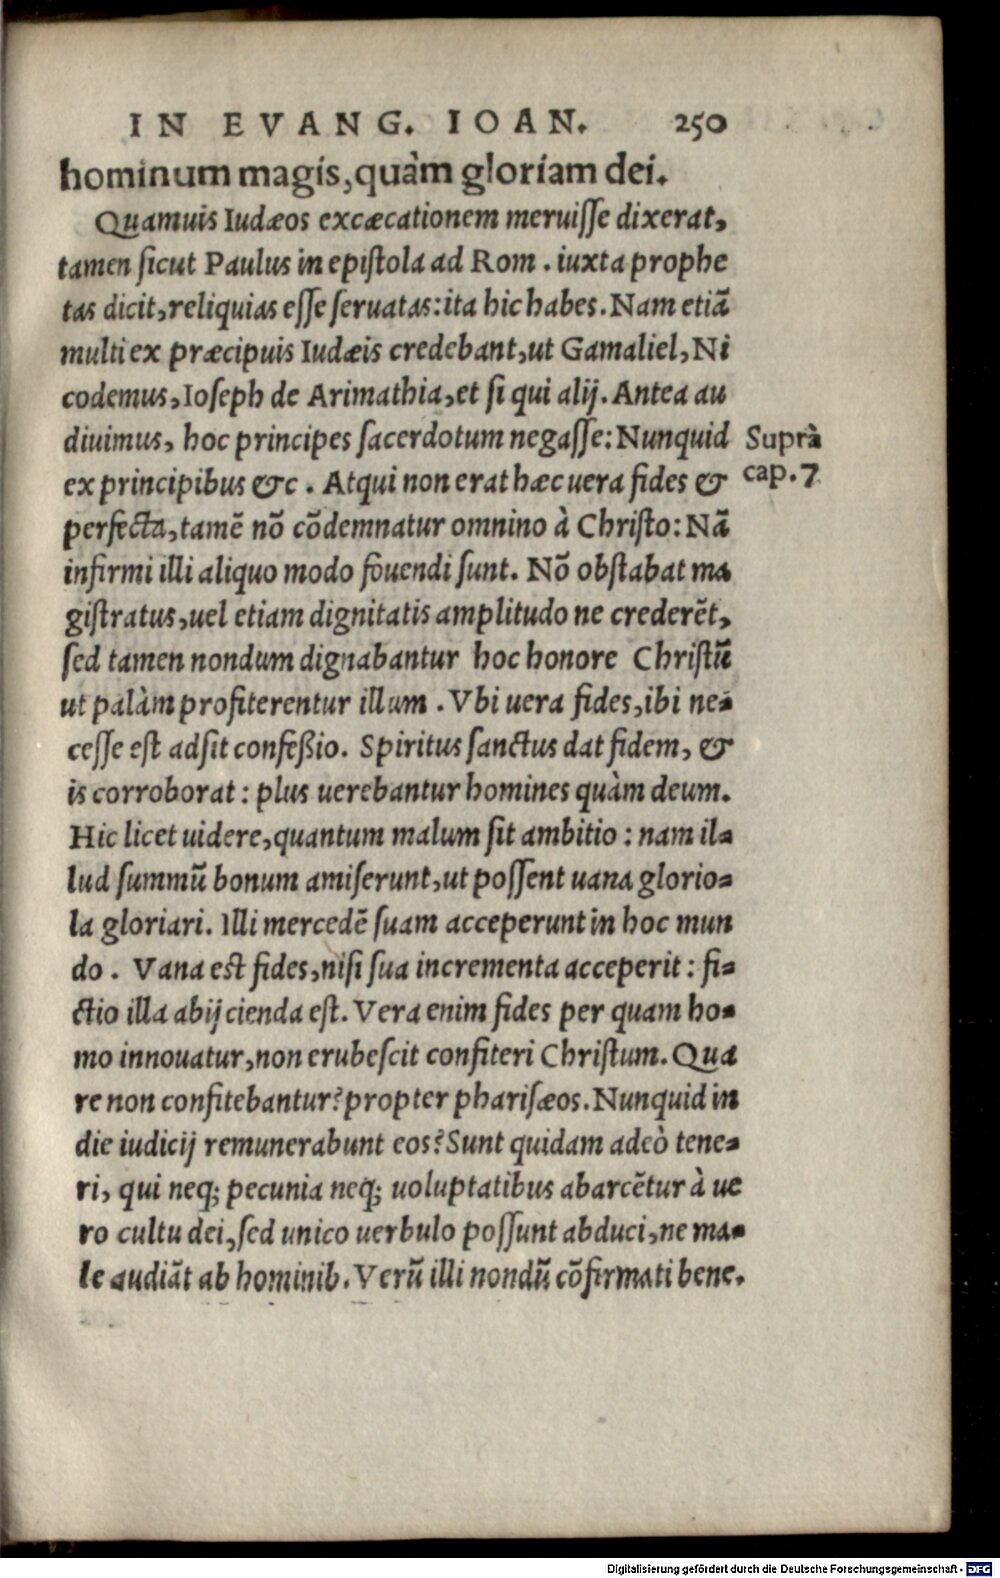 IN EVANG. IOAN. 250
hominum magis, quàm gloriam dei.
Quamuis Iudæos excæcationem meruisse dixerat,
tamen sicut Paulus in epistola ad Rom. iuxta prophe
tas dicit, reliquias esse seruatas: ita hic habes. Nam etiã
multi ex præcipuis Iudæis credebant, ut Gamaliel, Ni
codemus, Ioseph de Arimathia, et si qui alij. Antea au
diuimus, hoc principes sacerdotum negasse: Nunquid
Suprà
ex principibus &c. Atqui non erat hæc uera fides &
cap. 7
perfecta, tamẽ nõ cõdemnatur omnino à Christo: Nã
infirmi illi aliquo modo fouendi sunt. Nõ obstabat ma
gistratus, uel etiam dignitatis amplitudo ne crederẽt,
sed tamen nondum dignabantur hoc honore Christũ
ut palàm profiterentur illum. Vbi uera fides, ibi ne-
cesse est adsit confeßio. Spiritus sanctus dat fidem, &
is corroborat: plus uerebantur homines quàm deum.
Hic licet uidere, quantum malum sit ambitio: nam il-
lud summũ bonum amiserunt, ut possent uana glorio-
la gloriari. Illi mercedẽ suam acceperunt in hoc mun
do. Vana est fides, nisi sua incrementa acceperit: fi-
ctio illa abijcienda est. Vera enim fides per quam ho-
mo innouatur, non erubescit confiteri Christum. Qua
re non confitebantur? propter pharisæos. Nunquid in
die iudicij remunerabunt eos? Sunt quidam adeò tene-
ri, qui neq; pecunia neq; uoluptatibus abarcẽtur à ue
ro cultu dei, sed unico uerbulo possunt abduci, ne ma-
le audiãt ab hominib. Verũ illi nondũ cõfirmati bene.
Digitalisierung gefördert durch die Deutsche Forschungsgemeinschaft - DFG